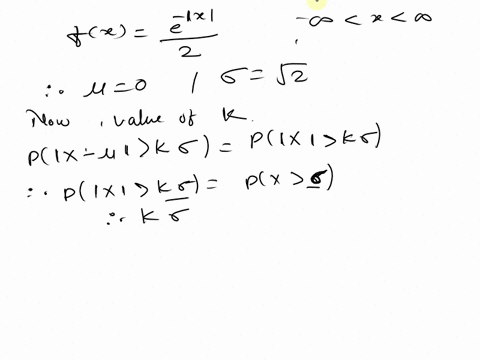 f(x) = e^{-|x|}/2    -∞ < x < ∞
∴ μ = 0 , σ = √2
Now , value of K.
P(|X - μ| > K σ) = P(|X| > K σ)
∴ P(|X| > K σ) = P(X > σ)
∴ K σ